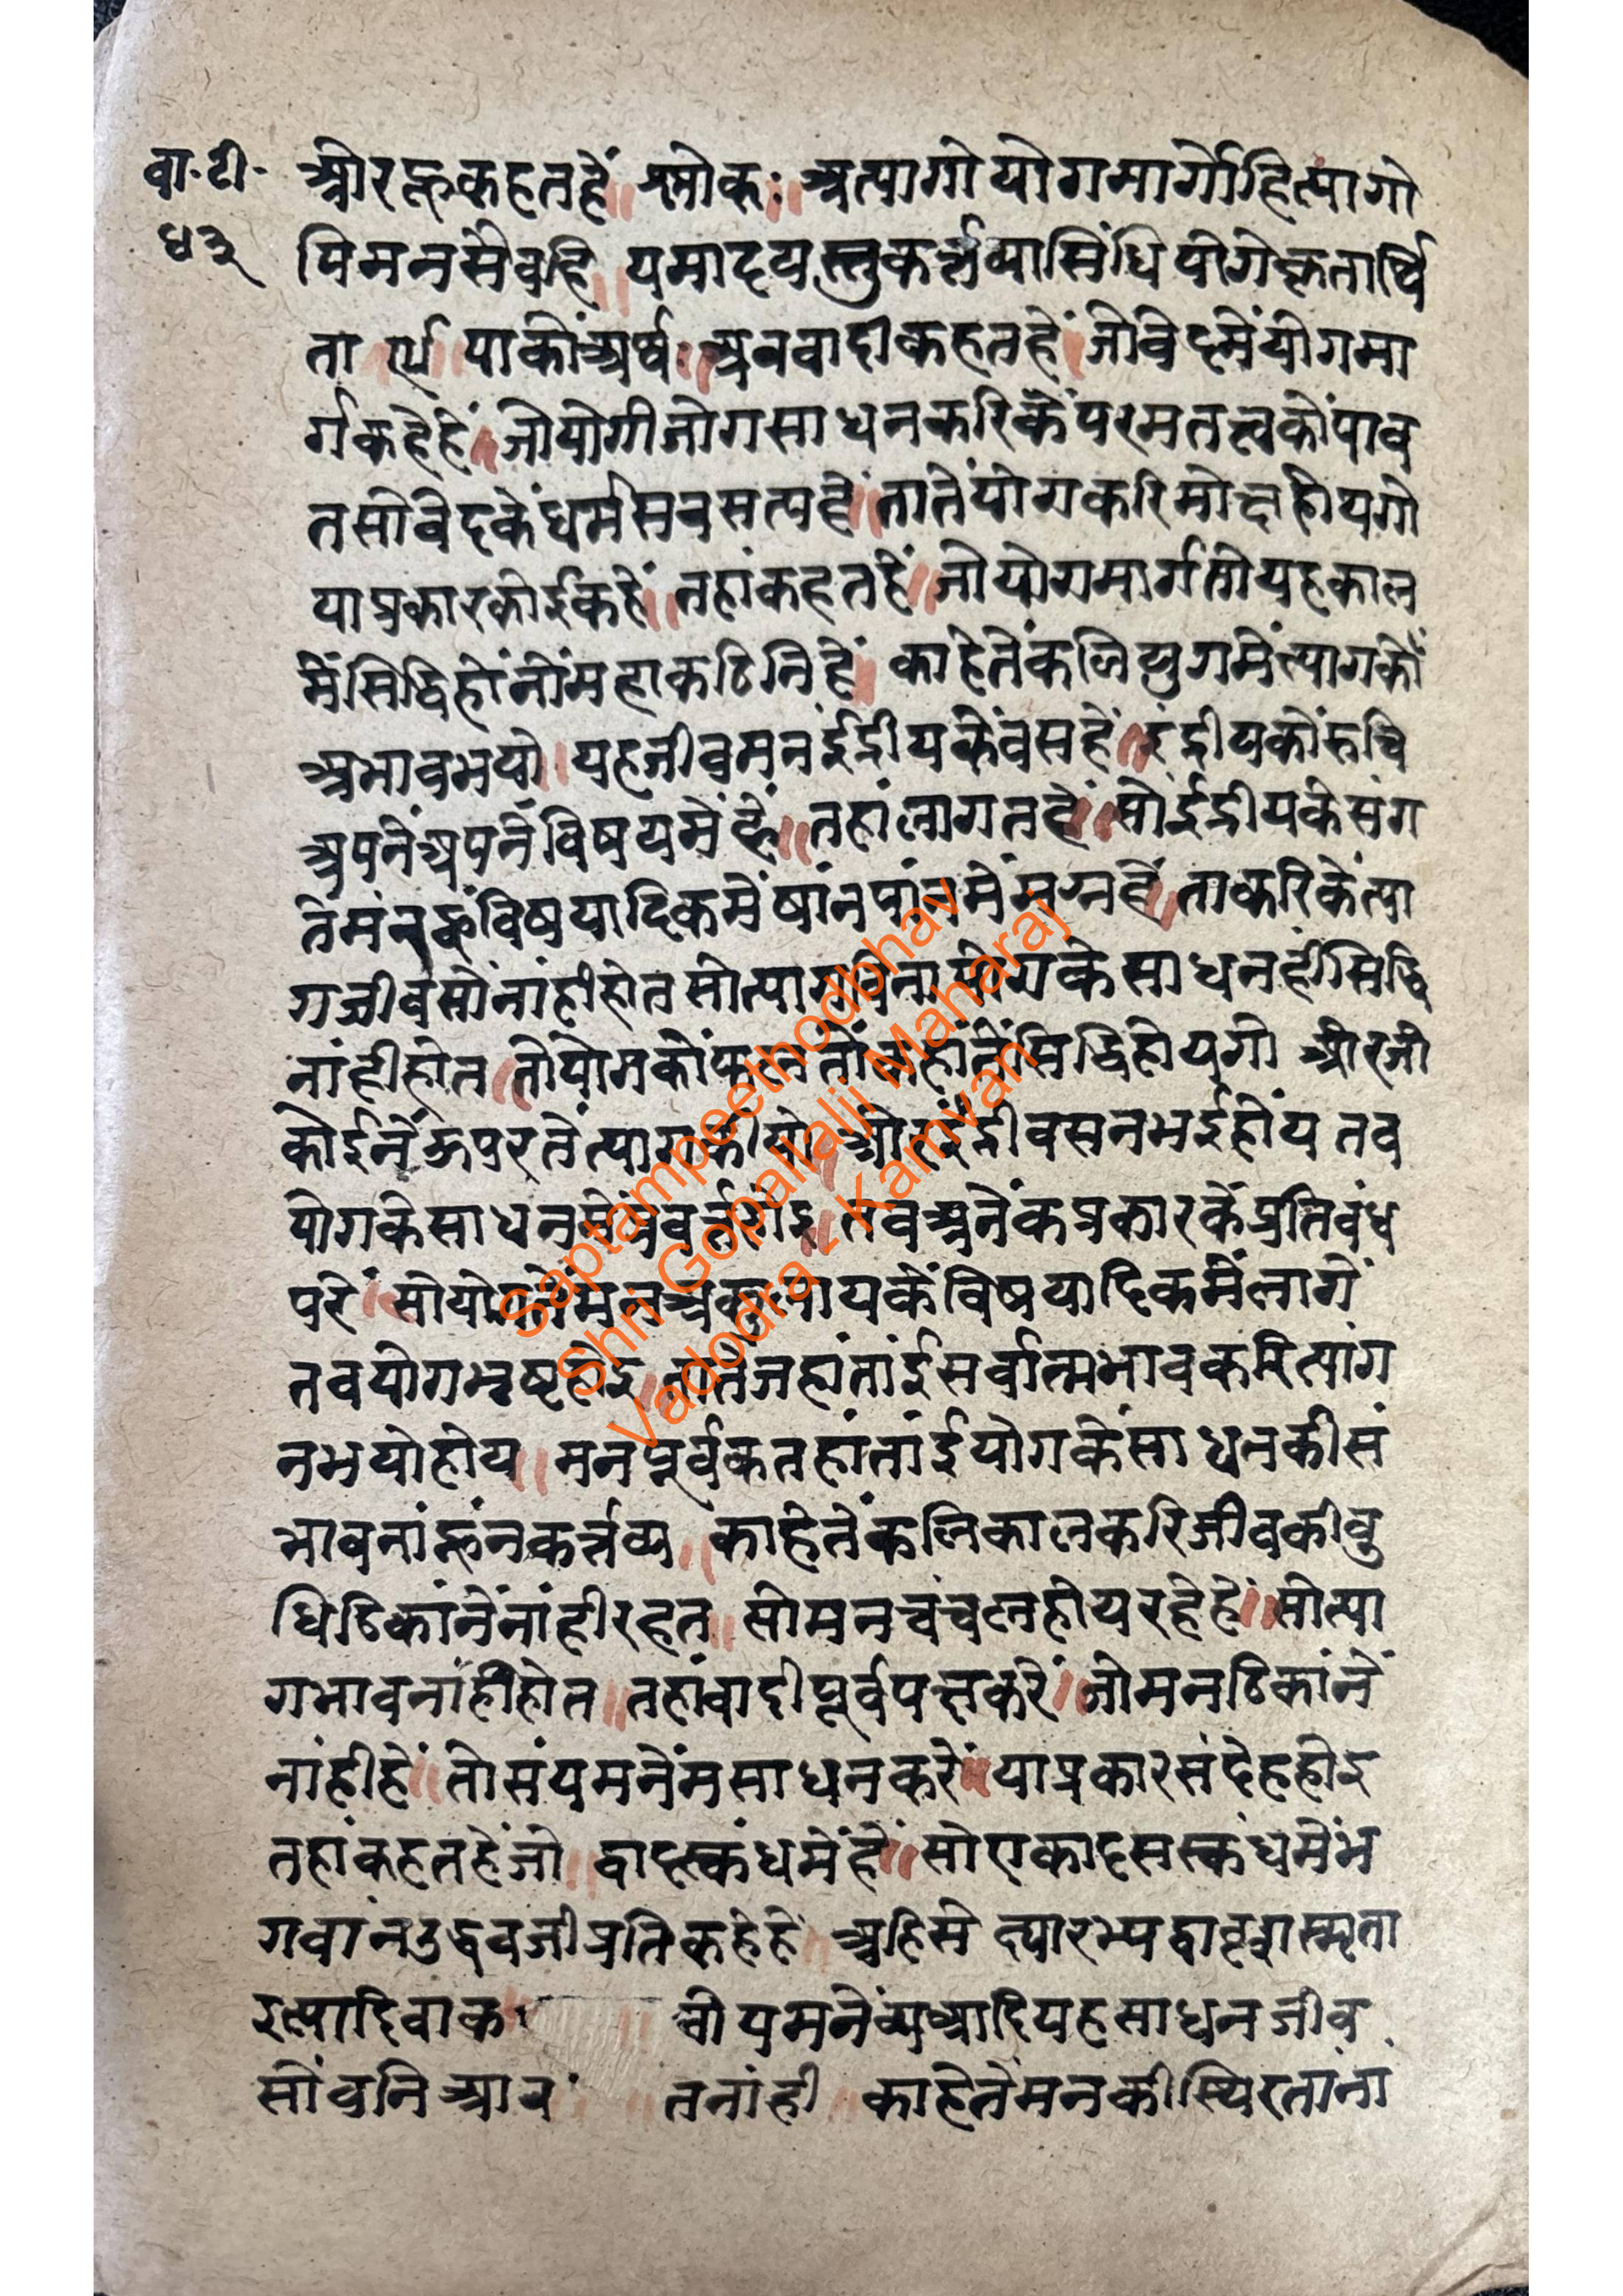 वा·टी·
४३
औरहूकहतहें॥ श्लोकः॥ अत्यागोयोगमार्गोहित्यागो
पिमनसेवहि॥ यमादयस्तुकर्त्तव्यासिधियोगेकृतार्थि
ता ॥१५॥ याकोंअर्थः॥ अबवादीकहतहें॥जोवेदमेंयोगमा
र्गकहेहें॥जोयोगीजोगसाधनकरिकेंपरमतत्त्वकोंपाव
तसोवेदकेंधर्मसबसत्यहें॥तातेंयोगकरिमोक्षहोयगो
याप्रकारकोईकहें॥ तहांकहतहें॥जोयोगमार्गतोयहकाल
मेंसिद्धिहोंनोंमहाकठिनिहें॥ काहेतेंकलियुगमेंत्यागकों
अभावभयो॥यहजीवमनईंद्रीयकेंवसहें॥इंद्रीयकोंरुचि
अपनेंअपनेंविषयमेंहें॥तहांलागतहें॥सोईंद्रीयकेसंग
तेंमंनकूंविषयादिकमेंषांनपांनमेंमग्नहें॥ताकरिकेंत्या
गजीवसोंनांहीहोतसोत्यागविनायोगकेसाधनहींसिद्धि
नांहीहोत॥तोयोगकोंफलतोंकहांतेंसिद्धिहोयगो औरजी
कोईनेंऊपरतेंत्यागकीयो॥औरइंद्रीवसनभईहोंय तब
योगकेसाधनमेंप्रवर्त्तहोइ॥ तवअनेंकप्रकारकेंप्रतिबंध
परें॥सोयोगतेंमनअकुलायकेंविषयादिकमेंलागें
तवयोगभ्रष्टहोइ॥तातेंजहांतांईसर्वात्मभावकरित्याग
नभयोहोय॥ मनपूर्वकतहांतांईयोगकेंसाधनकीसं
भावनांहूंनकर्त्तव्य॥काहेतेंकलिकालकरिजीवकीबु
धिठिकांनेंनांहीरहत॥ सोमनचंचलहोयरहेहें॥सोत्या
गभावनांहीहोत॥तहांवादीपूर्वपक्षकरें॥जोमनठिकांनें
नांहीहें॥तोसंयमनेंमसाधनकरों॥याप्रकारसंदेहहोइ
तहांकहतहेंजो॥द्वादस्कंधमेंहें॥सोएकादसस्कंधमेंभ
गवांनउद्धवजीप्रतिकहेहें॥ अहिंसे त्यारभ्यद्वादशस्मृता
इत्यादिवाक चीयमनेंव्यथ्यादियहसाधनजीव
सोंवनिआव तनांही काहेतेंमनकीस्थिरतांनां
Saptampeethodbhav
Shri Gopallalji Maharaj
Vadodra - Kamvan